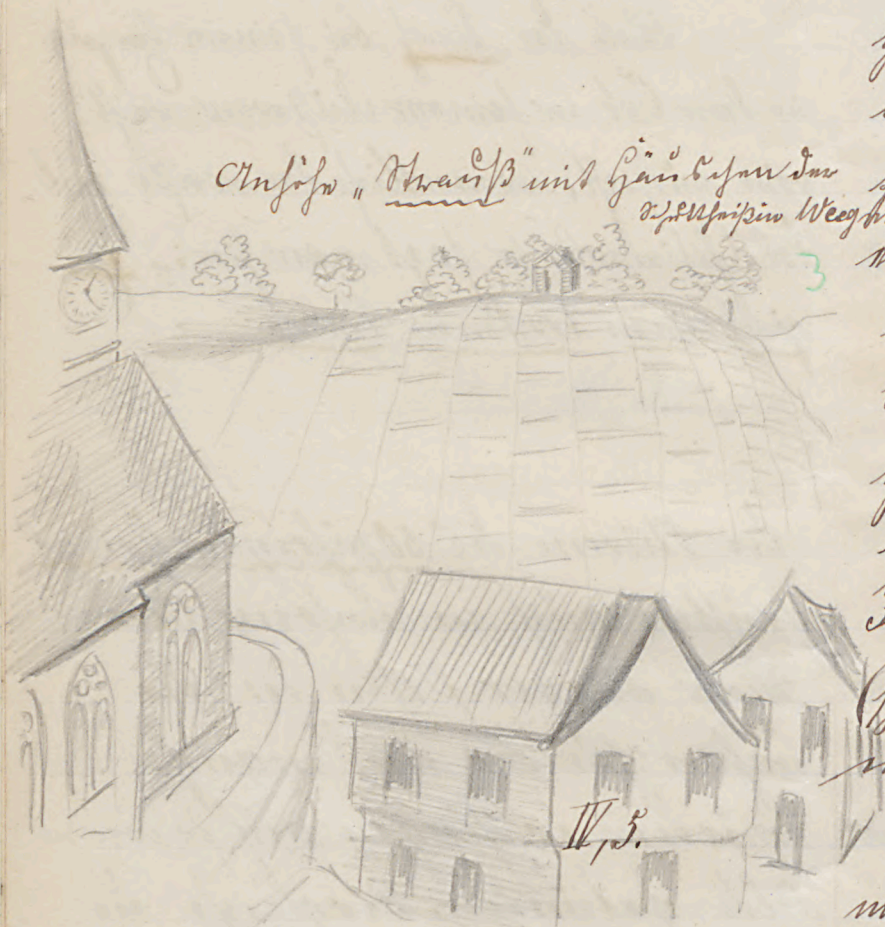 Anhöhe „Strauß“ mit Häuschen der
Schultheißin Weeg
3
IV, 5.